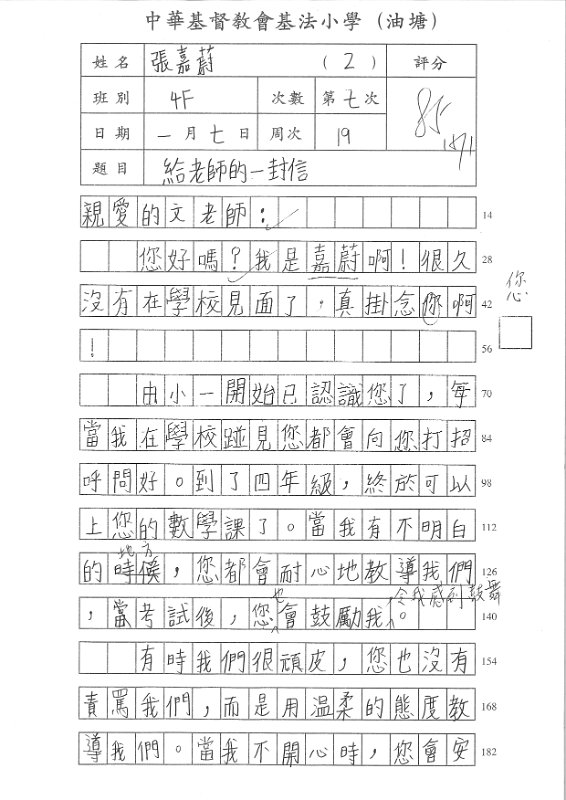 中華基督教會基法小學（油塘）
姓名 張嘉蔚 （2） 評分
班別 4F 次數 第七次 85
日期 一月七日 周次 19
題目 給老師的一封信
親愛的文老師： 14
您好嗎？我是嘉蔚啊！很久 28
您
沒有在學校見面了，真掛念你啊 42
！ 56
由小一開始已認識您了，每 70
當我在學校碰見您都會向您打招 84
呼問好。到了四年級，終於可以 98
上您的數學課了。當我有不明白 112
地方
的時候，您都會耐心地教導我們 126
也 令我感到鼓舞
，當考試後，您會鼓勵我。 140
有時我們很頑皮，您也沒有 154
責罵我們，而是用溫柔的態度教 168
導我們。當我不開心時，您會安 182